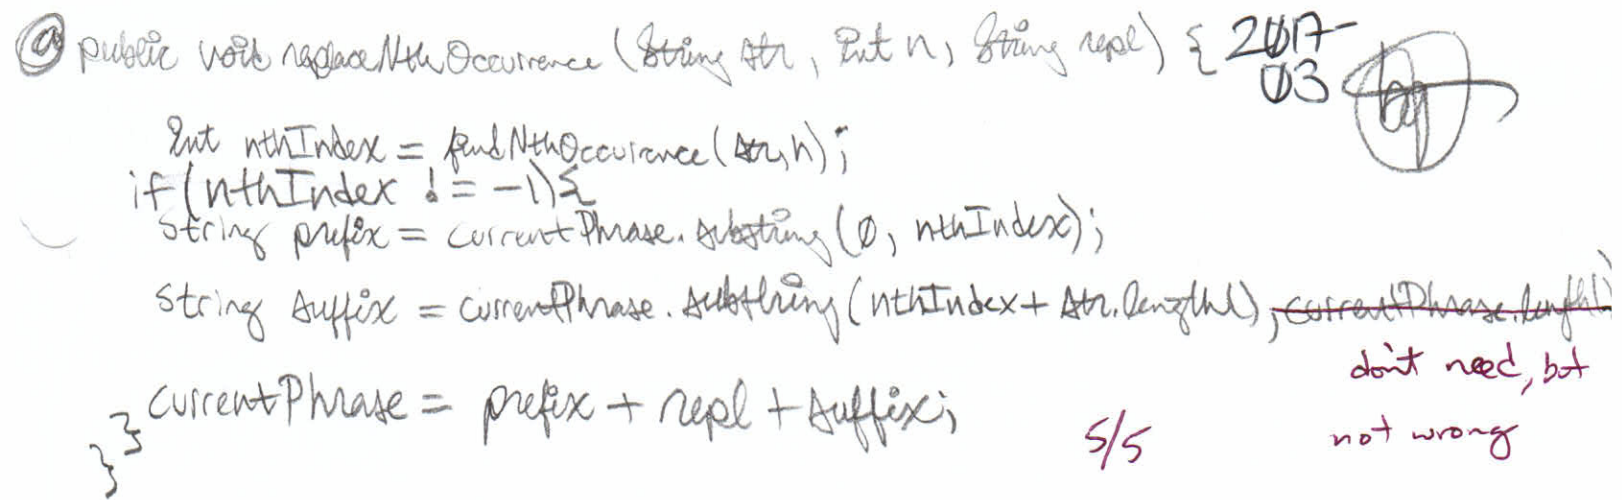 (a) public void replaceNthOccurrence (String str, int n, String repl) { 2017
03
bg
int nthIndex = findNthOccurrence(str,n);
if(nthIndex != -1){
String prefix = currentPhrase.substring(0, nthIndex);
String suffix = currentPhrase.substring(nthIndex+str.length(), currentPhrase.length()
don't need, but
currentPhrase = prefix + repl + suffix;
}
5/5 not wrong
}